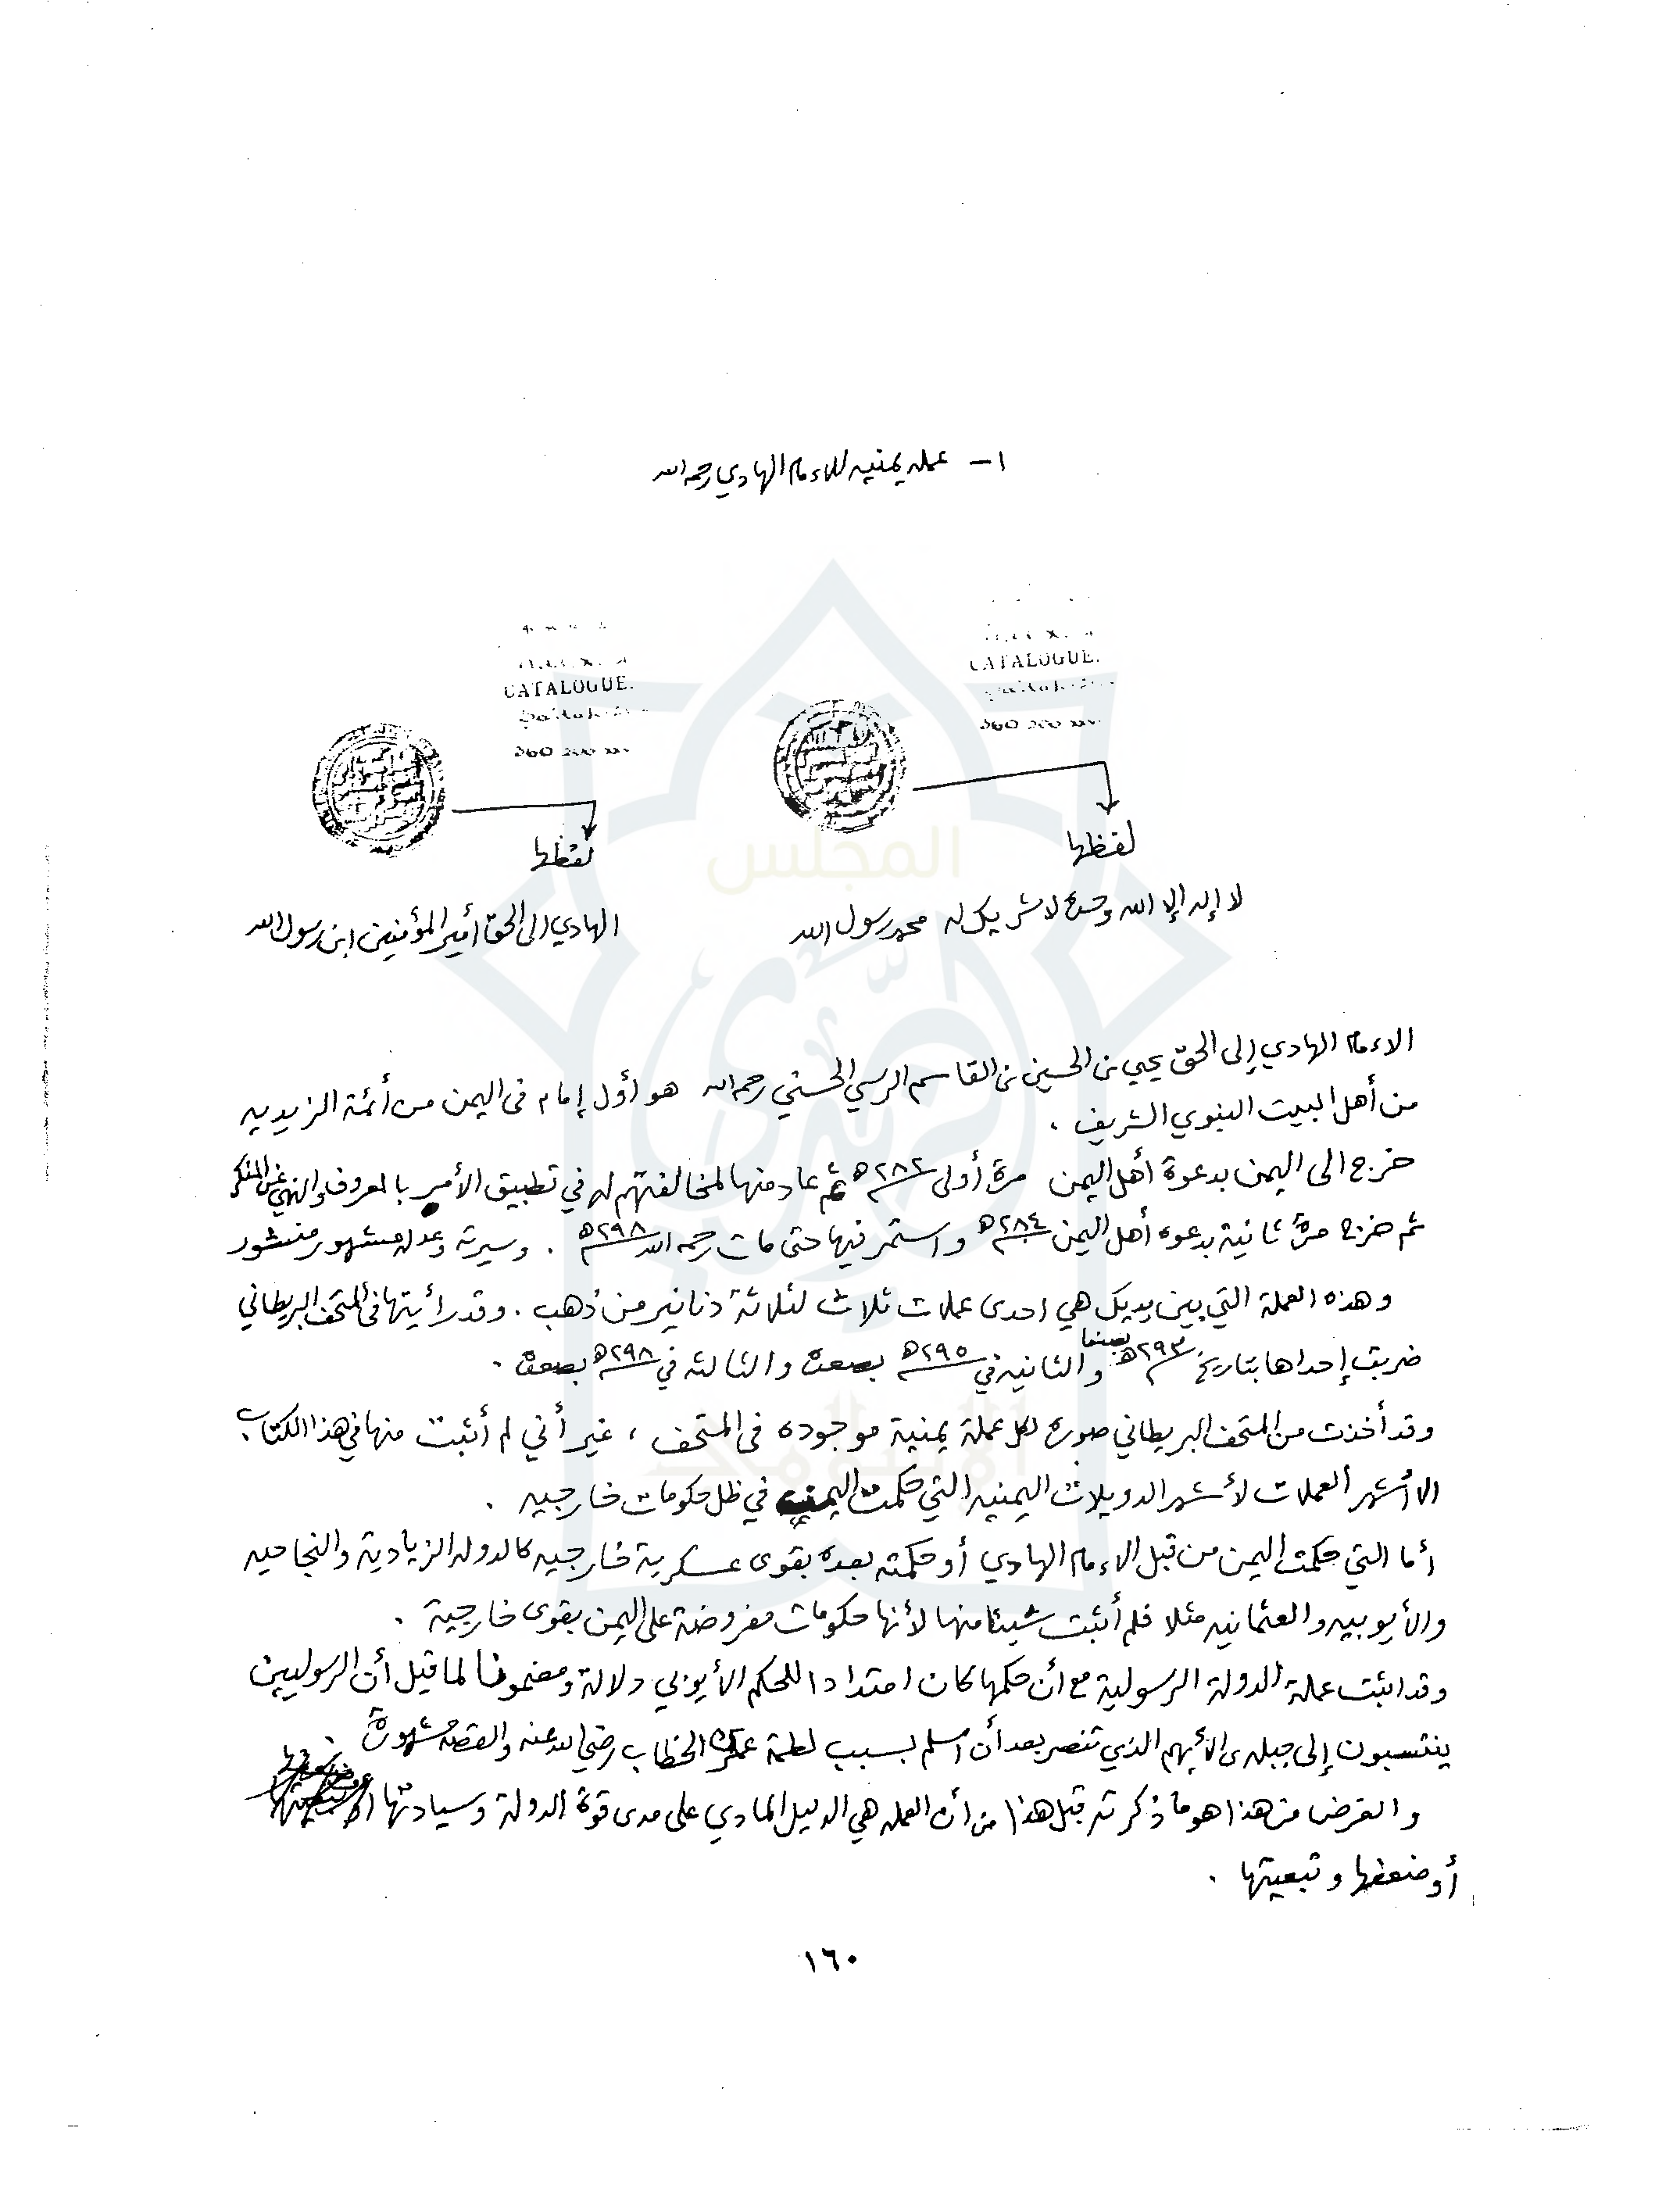 ١- عمله يمنيه للامام الهادي رحمه الله
CATALOGUE.
CATALOGUE.
لفظها
لفظها
لا إله إلا الله وحده لا شريك له محمد رسول الله
الهادي الى الحق أمير المؤمنين ابن رسول الله
المجلس
الامام الهادي إلى الحق يحيى بن الحسين بن القاسم الرسي الحسني رحمه الله هو أول إمام فى اليمن من أئمة الزيديه
من أهل البيت النبوي الشريف .
خرج الى اليمن بدعوة أهل اليمن مرة أولى ٢٨٢ه ثم عاد منها لمخالفتهم له في تطبيق الأمر بالمعروف والنهي عن المنكر
ثم خرج مرة ثانية بدعوه أهل اليمن ٢٨٤ه واستمر فيها حتى مات رحمه الله ٢٩٨ه . وسيرته وعدله مشهور منشور
وهذه العملة التي بين يديك هي احدى عملات ثلاث لثلاثة دنانير من ذهب . وقد رأيتها فى المتحف البريطاني
ضربت إحداها بتاريخ ٢٩٣ه بصنعا والثانيه في ٢٩٥ه بصعدة والثالثه في ٢٩٨ه بصعدة .
وقد أخذت من المتحف البريطاني صورة لكل عملة يمنية موجوده فى المتحف ، غير أني لم أثبت منها في هذا الكتاب
الا أشهر العملات لأشهر الدويلات اليمنيه التي حكمت اليمن في ظل حكومات خارجيه .
أما التي حكمت اليمن من قبل الامام الهادي أو حكمته بعده بقوى عسكرية خارجيه كالدوله الزيادية والنجاحيه
والأيوبيه والعثمانيه مثلا فلم أثبت شيئا منها لأنها حكومات مفروضة على اليمن بقوى خارجية .
وقد اثبت عملة الدولة الرسولية مع أن حكمها كان امتدادا للحكم الأيوبي دلالة ومضمونا لما قيل أن الرسوليين
ينتسبون إلى جبلة بن الأيهم الذي تنصر بعد أن أسلم بسبب لطمة عمر بن الخطاب رضي الله عنه والقصه مشهورة .
والغرض من هذا هو ما ذكرته قبل هذا من أن العمله هي الدليل المادي على مدى قوة الدولة وسيادتها
أو ضعفها وتبعيتها .
١٦٠